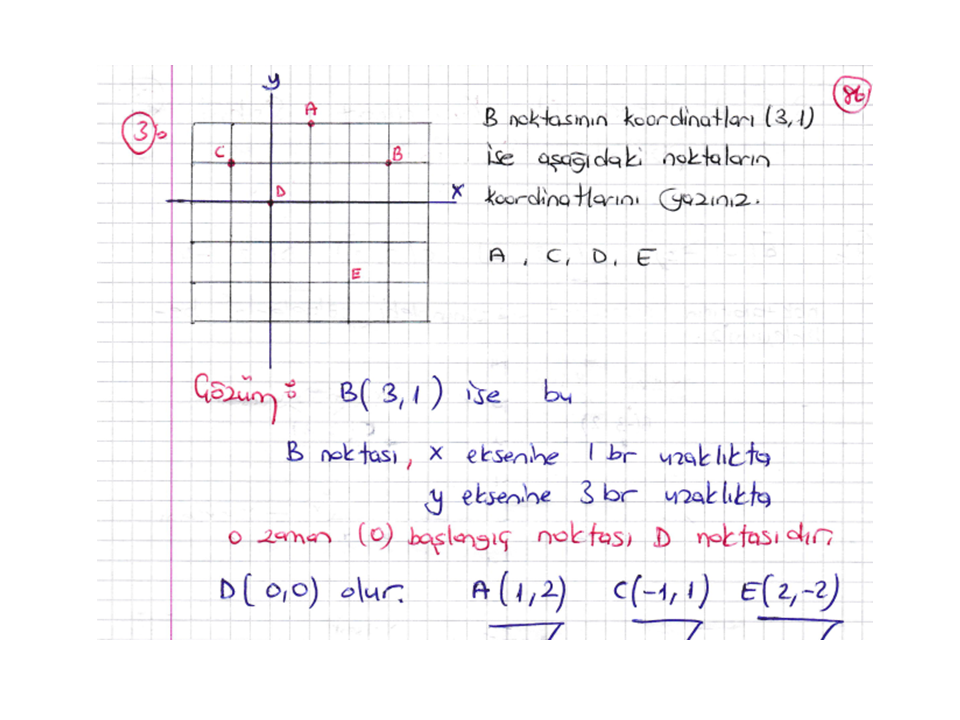 y
86
3)
A
B noktasının koordinatları (3,1)
C
B
ise aşağıdaki noktaların
D
x
koordinatlarını yazınız.
E
A, C, D, E
Çözüm: B(3,1) ise bu
B noktası, x eksenine 1 br uzaklıkta
y eksenine 3 br uzaklıkta
o zaman (0) başlangıç noktası D noktasıdır.
D(0,0) olur. A(1,2) C(-1,1) E(2,-2)